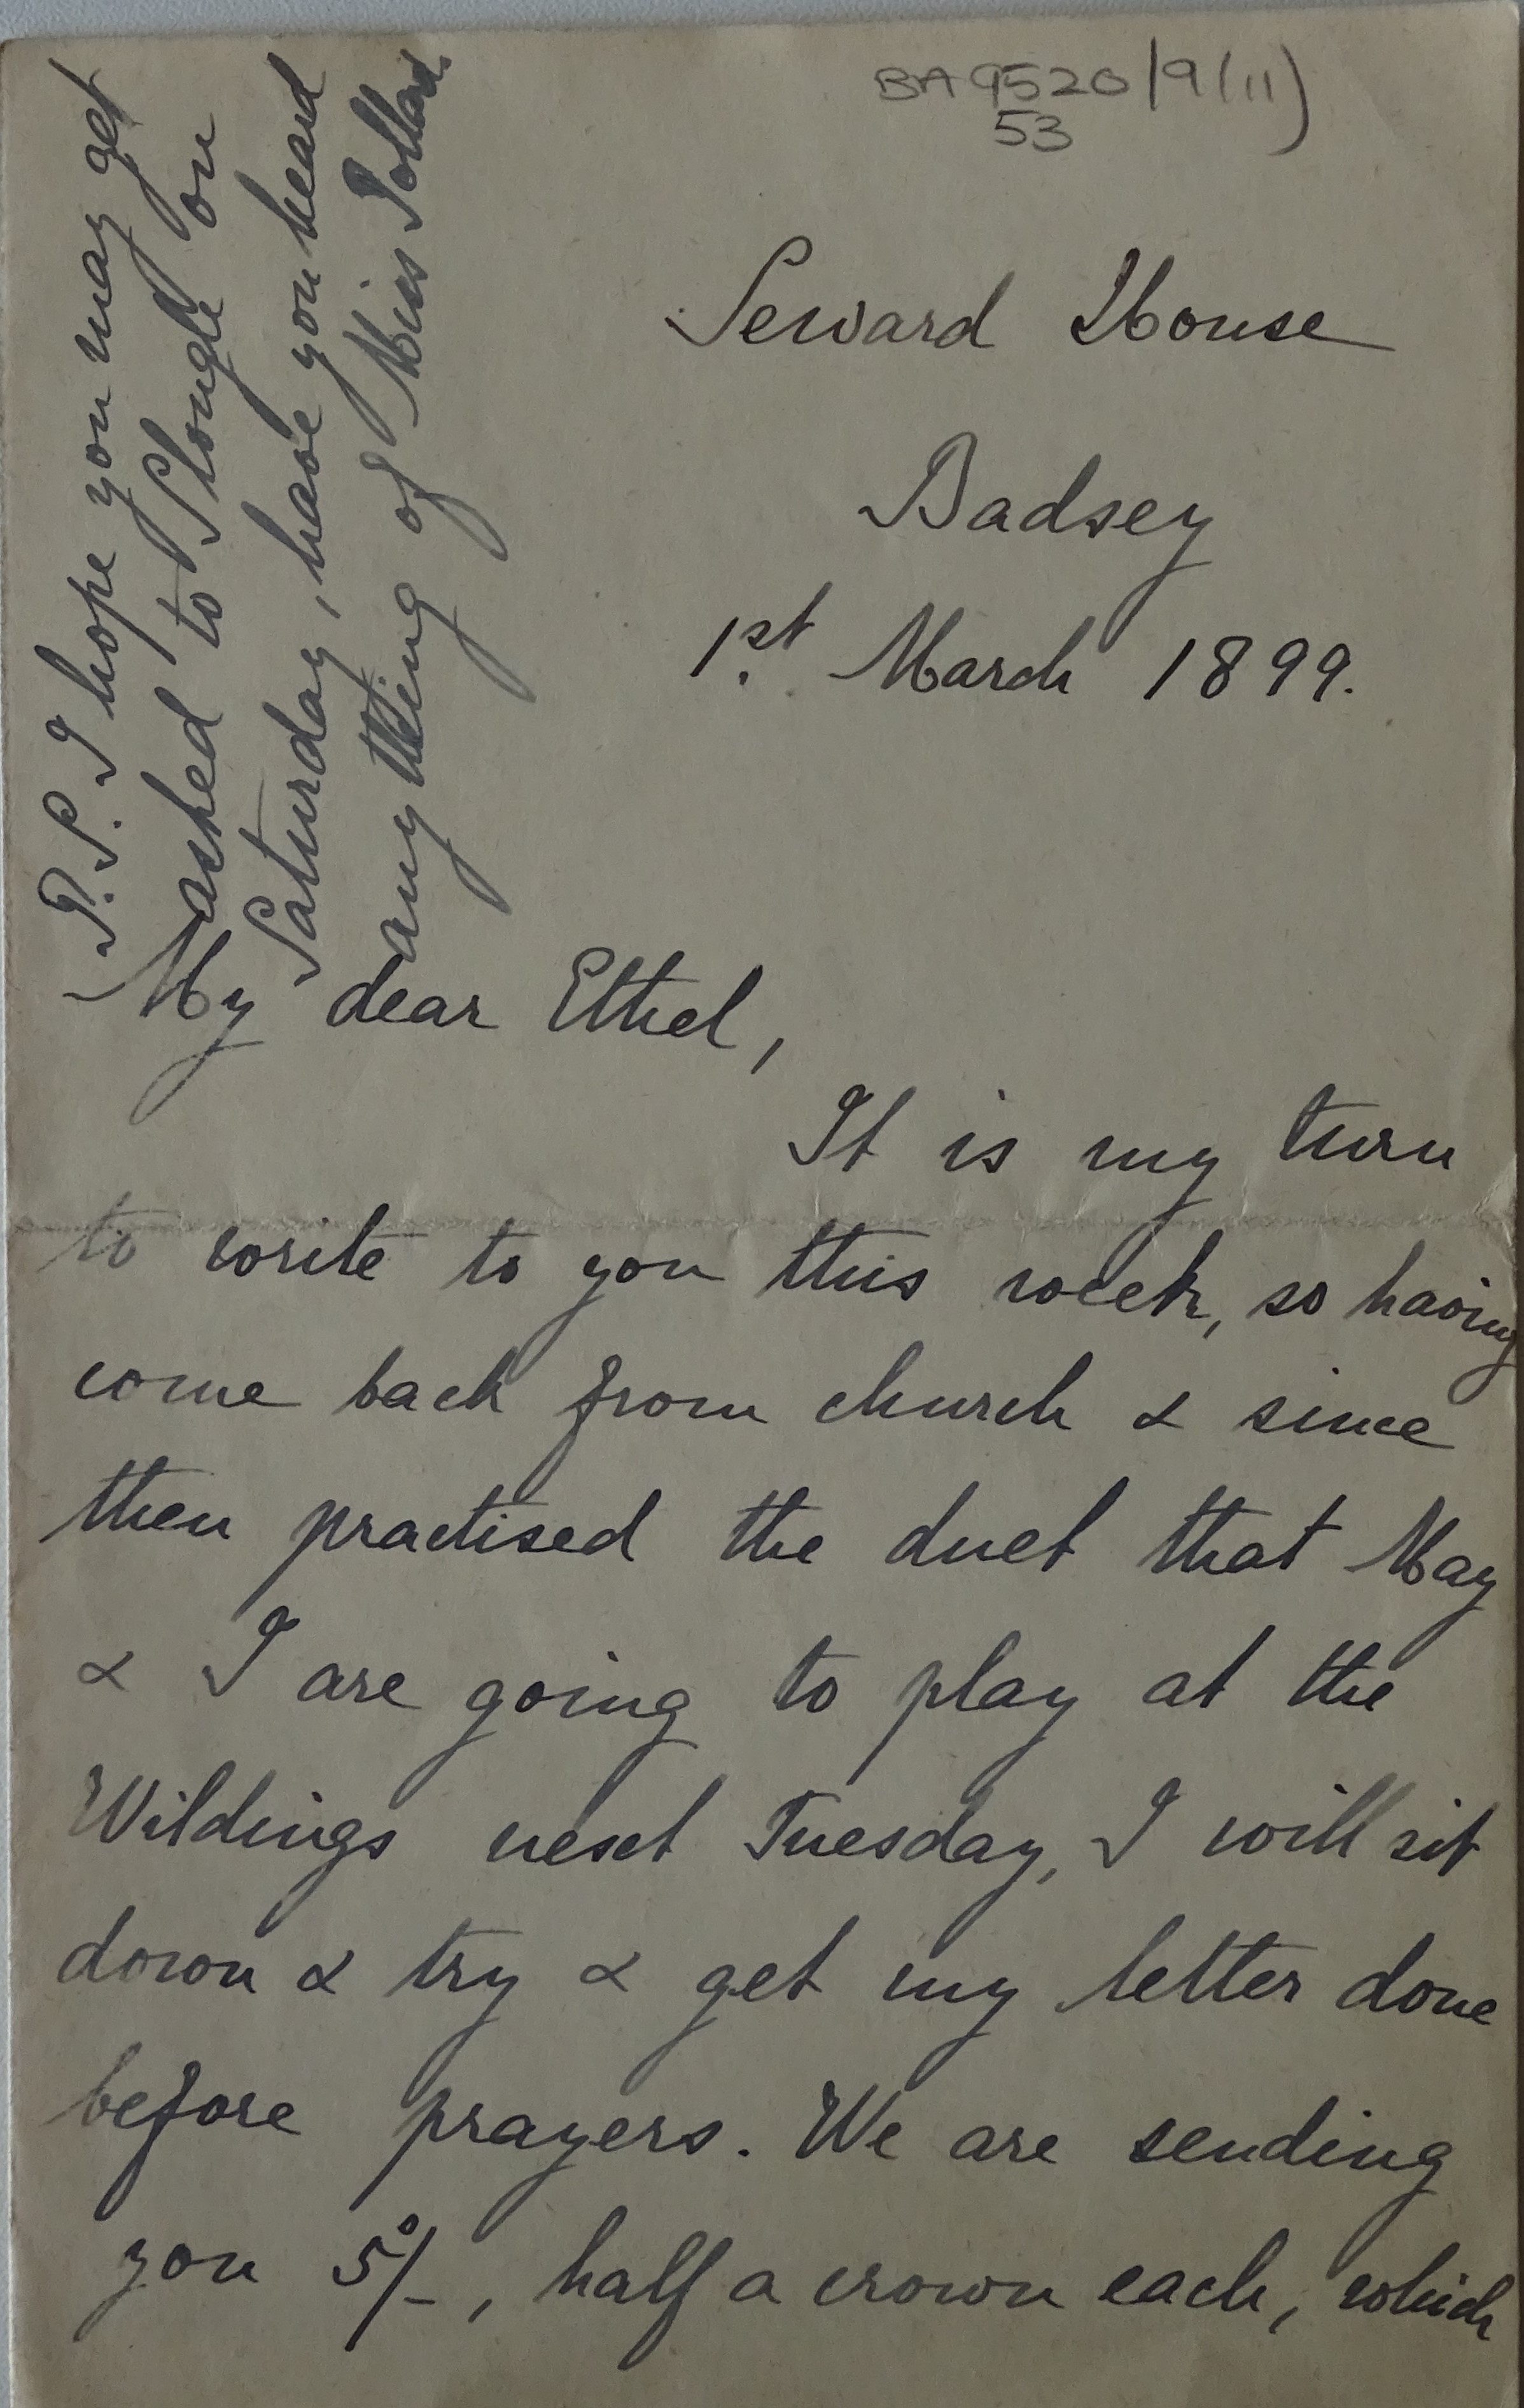 BA 9520/9(11)
53
Seward House
Badsey
1st March 1899.
My dear Ethel,
It is my turn
to write to you this week, so having
come back from church & since
then practised the duet that May
& I are going to play at the
Wildings next Tuesday, I will sit
down & try & get my letter done
before prayers. We are sending
you 5/-, half a crown each, which
P.S. I hope you may get
asked to Slough on
Saturday, have you heard
anything of Miss Pollard.